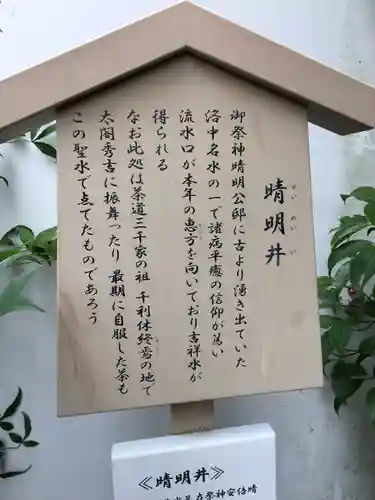 晴明井
せいめいい
御祭神晴明公邸に古より湧き出ていた
洛中名水の一で諸病平癒の信仰が篤い
流水口が本年の恵方を向いており吉祥水が
得られる
なお此処は茶道三千家の祖 千利休終焉の地で
太閤秀吉に振舞ったり 最期に自服した茶も
この聖水で点てたものであろう
≪晴明井≫
祭神安倍晴